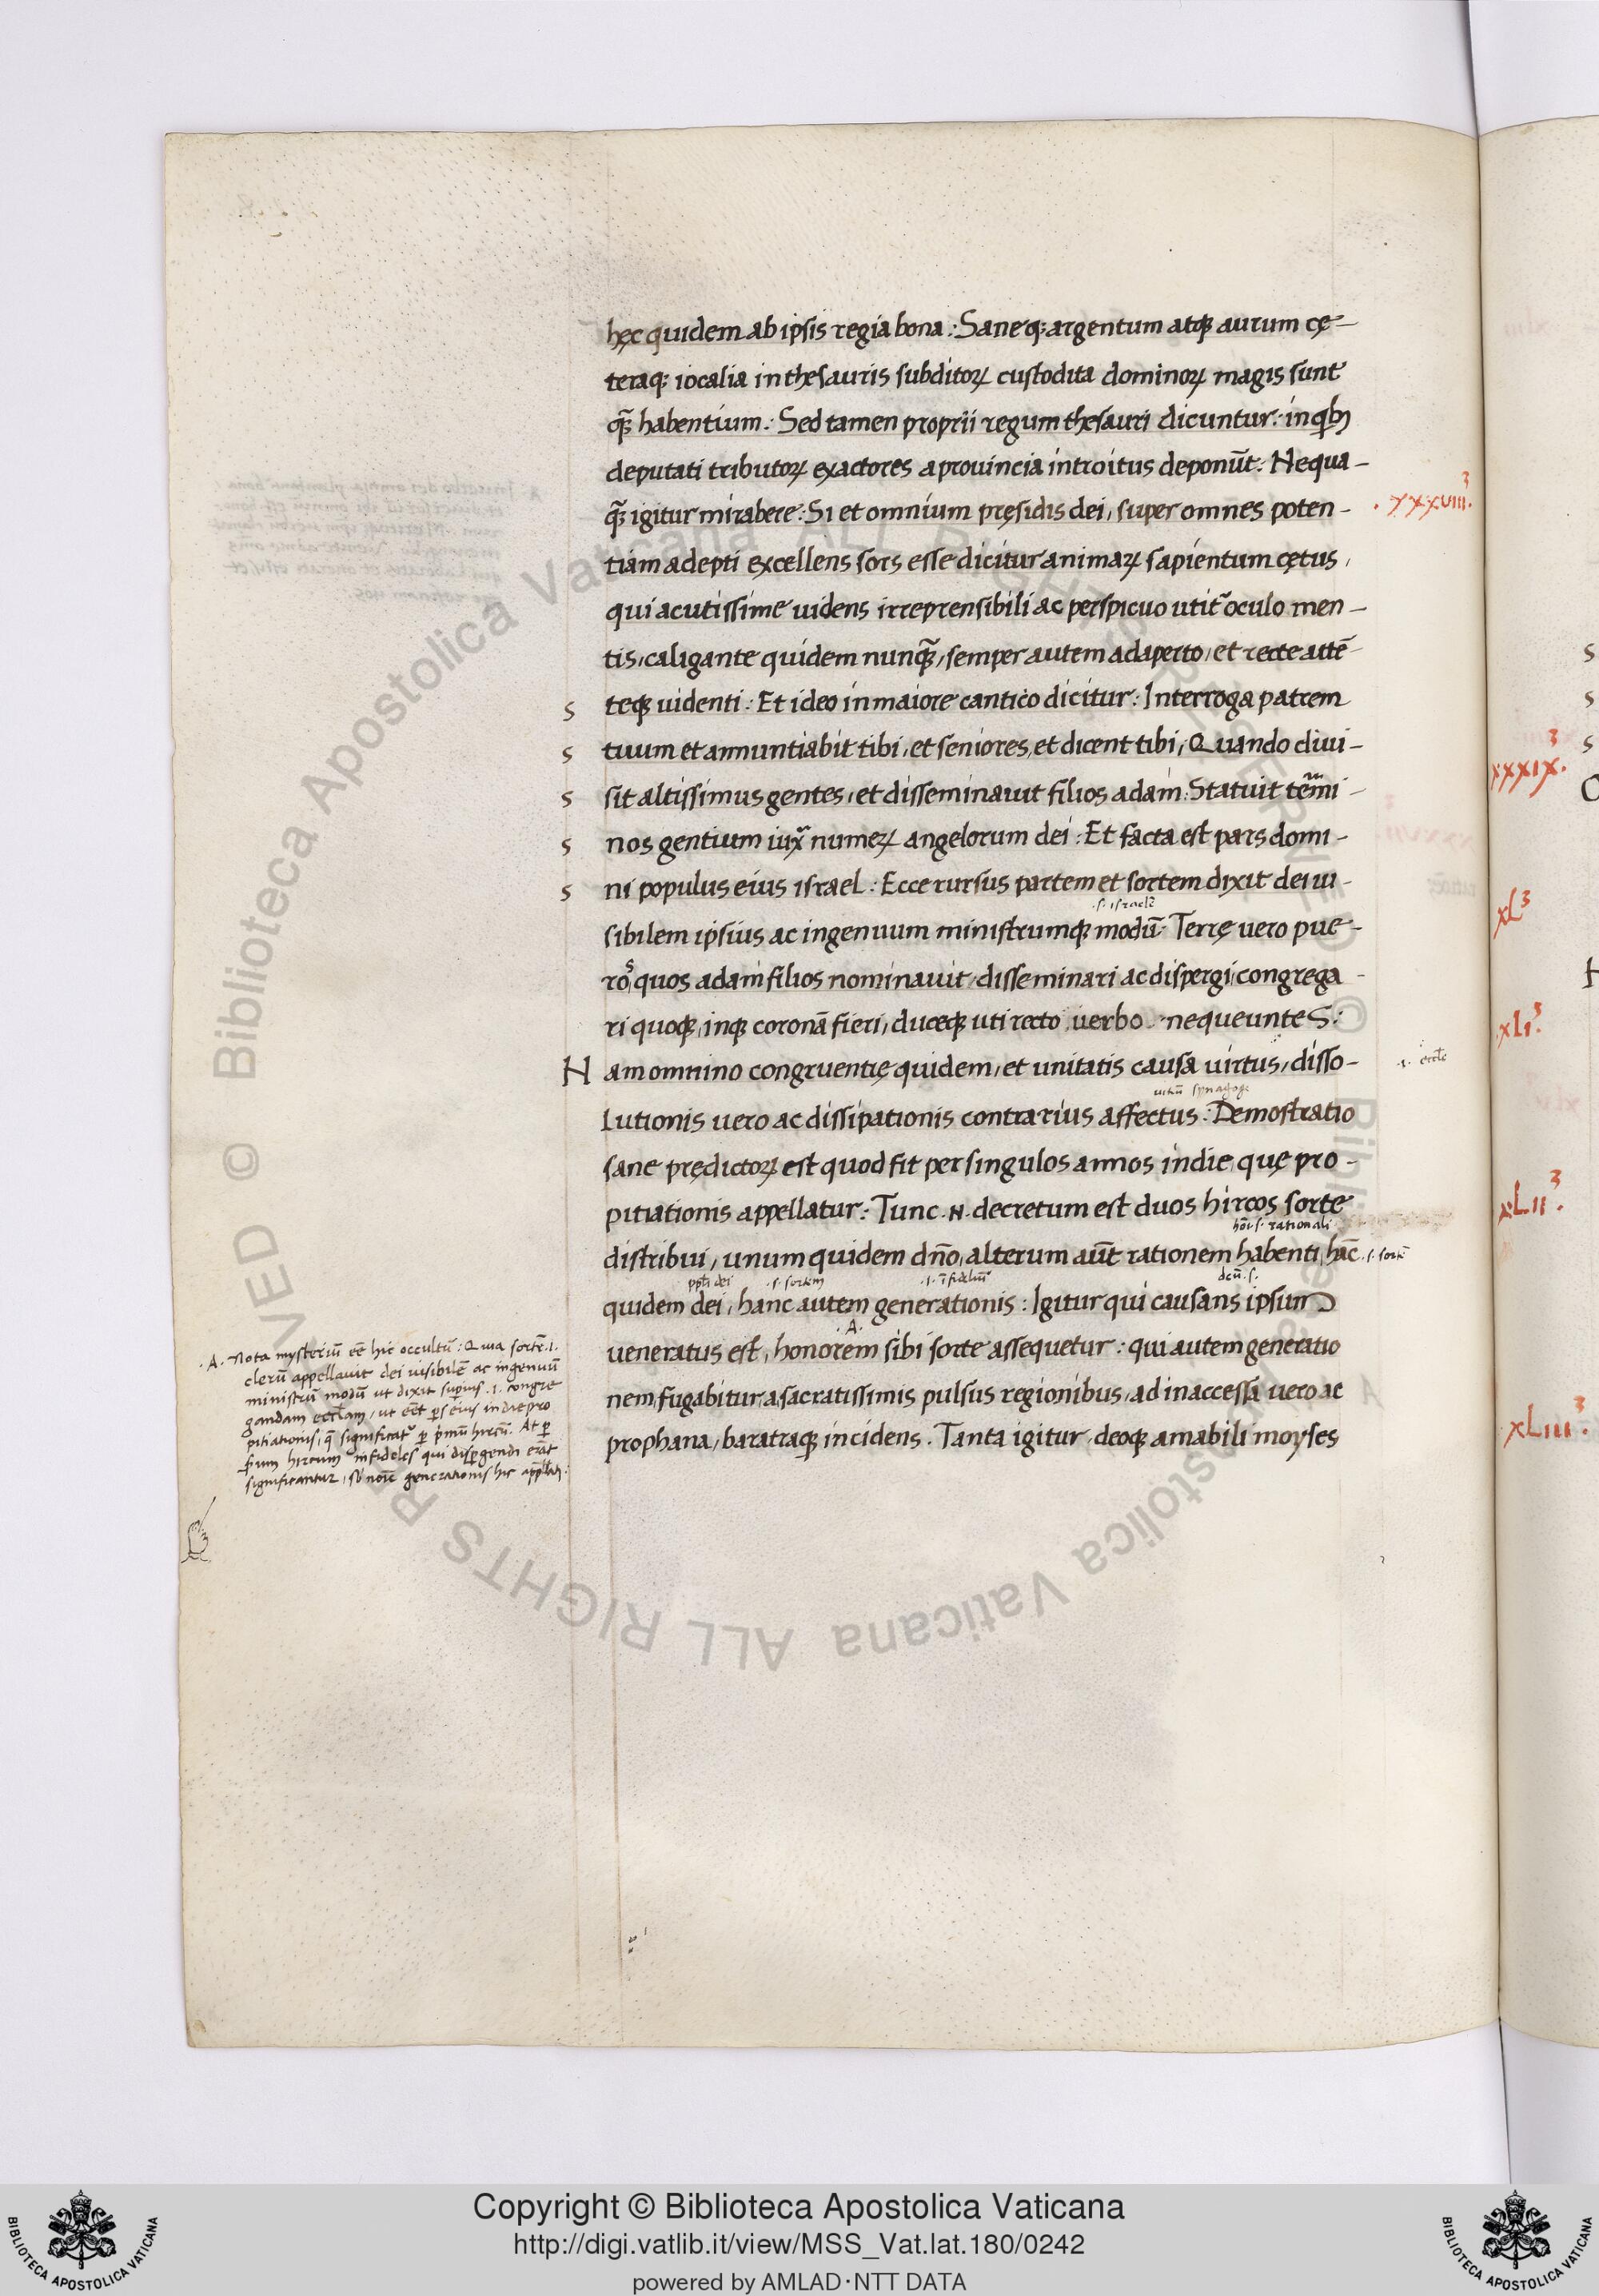 hęc quidem ab ipsis regia bona : Saneq; argentum atq; aurum cę-
teraq; iocalia in thesauris subditoꝝ custodita dominoꝝ magis sunt
q̃ habentium : Sed tamen proprii regum thesauri dicuntur : in qbꝫ
deputati tributoꝝ exactores a prouincia introitus deponũt : Nequa-
q̃ igitur mirabere : Si et omnium pręsidis dei, super omnes poten-
. xxxviii³.
tiam adepti excellens sors esse dicitur animaꝝ sapientum cętus,
qui acutissime uidens irreprensibili ac perspicuo utit᷑ oculo men-
tis, caligante quidem nunq̃, semper autem adaperto, et recte attẽ
teq; uidenti : Et ideo in maiore cantico dicitur : Interroga patrem
s
tuum et annuntiabit tibi, et seniores, et dicent tibi, Quando diui-
s
sit altissimus gentes, et disseminauit filios adam : Statuit tẽmi-
s
nos gentium iux᷑ numeꝝ angelorum dei : Et facta est pars domi-
s
ni populus eius israel : Ecce rursus partem et sortem dixit dei ui-
s
.s. israelẽ
sibilem ipsius ac ingenuum ministrumq; modũ : Terrę uero pue-
ro, quos adam filios nominauit, disseminari ac dispergi, congrega-
ri quoq;, inq; coronã fieri, duceq; uti recto uerbo nequeunteS :
Nam omnino congruentię quidem, et unitatis causa uirtus, disso-
.i. eccłe
uitiũ synagogę
lutionis uero ac dissipationis contrarius affectus : Demostratio
sane prędictoꝝ est quod fit per singulos annos in die, quę pro-
pitiationis appellatur : Tunc .N. decretum est duos hircos sorte
hõi .s. rationali
distribui, unum quidem dño, alterum aũt rationem habenti, hãc
.s. sortẽ
ppłi dei .s. sortem .i. ĩfideliũ deũ .s.
quidem dei, hanc autem generationis : Igitur qui causans ipsum
.A.
ueneratus est, honorem sibi sorte assequetur : qui autem generatio
nem, fugabitur, a sacratissimis pulsus regionibus, ad inaccessa uero ac
prophana, baratraq; incidens . Tanta igitur, deoq; amabili moyses
.A. Nota mysteriũ eẽ hic occultũ : Quia sortẽ .i.
clerũ appellauit dei uisibilẽ ac ingenuũ
ministrũ modũ ut dixit supius .i. congre
gandam eccłam, ut eẽt ps eius in die pro
pitiationis, q̃ significat᷑ p pmũ hircũ. At p
hircum infideles qui dispgendi erãt
significantur, nõie generationis hic
xxxix³.
xL³
xLi³.
xLii³.
xLiii³.
s
s
s
Copyright © Biblioteca Apostolica Vaticana
http://digi.vatlib.it/view/MSS_Vat.lat.180/0242
powered by AMLAD·NTT DATA
BIBLIOTECA APOSTOLICA VATICANA
BIBLIOTECA APOSTOLICA VATICANA